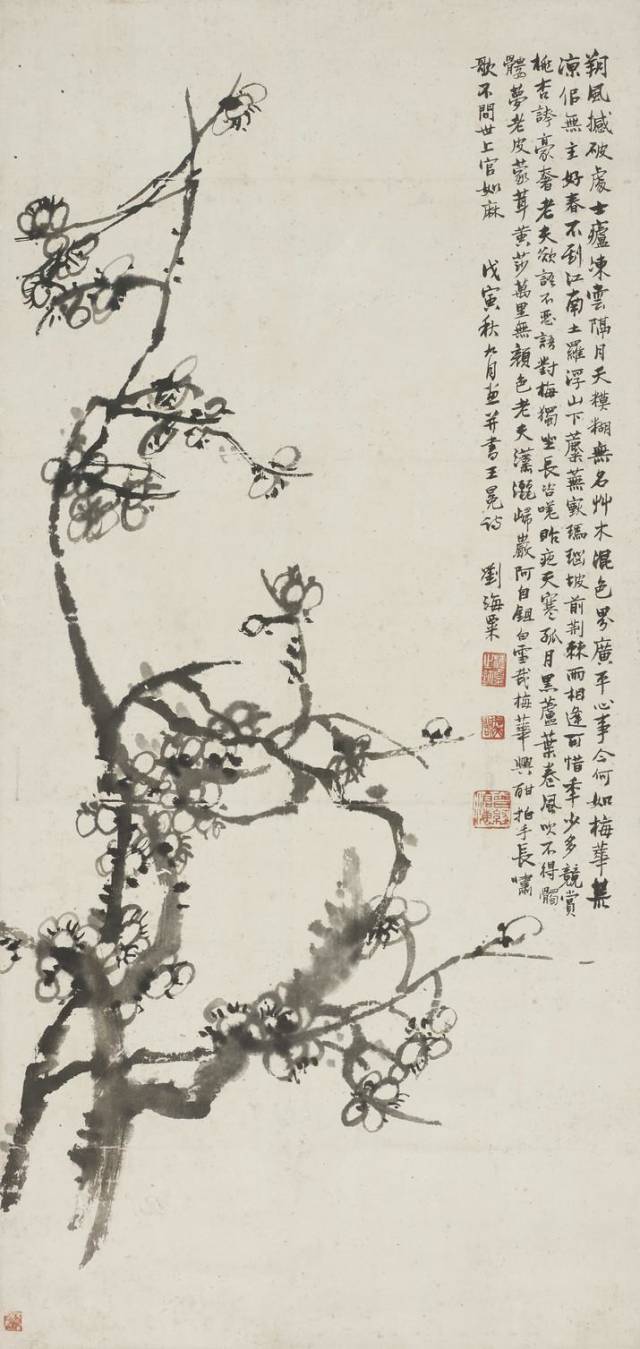 朔風撼破處士廬凍雲隔月天模糊無名艸木混色界廣平心事今何如梅華荒
涼佀無主好春不到江南土羅浮山下蘪蕪家瑪瑙坡前荆棘雨相逢可惜年少多競賞
桃杏誇豪奢老夫欲語不忍語對梅獨坐長咨嗟昨夜天寒孤月黑蘆葉卷風吹不得髑
髏夢老皮蒙茸黃莎萬里無顏色老夫瀟灑歸巖阿自鉏白雪栽梅華興酣拍手長嘯
歌不問世上官如麻
戊寅秋九月畫并書王冕詩 劉海粟